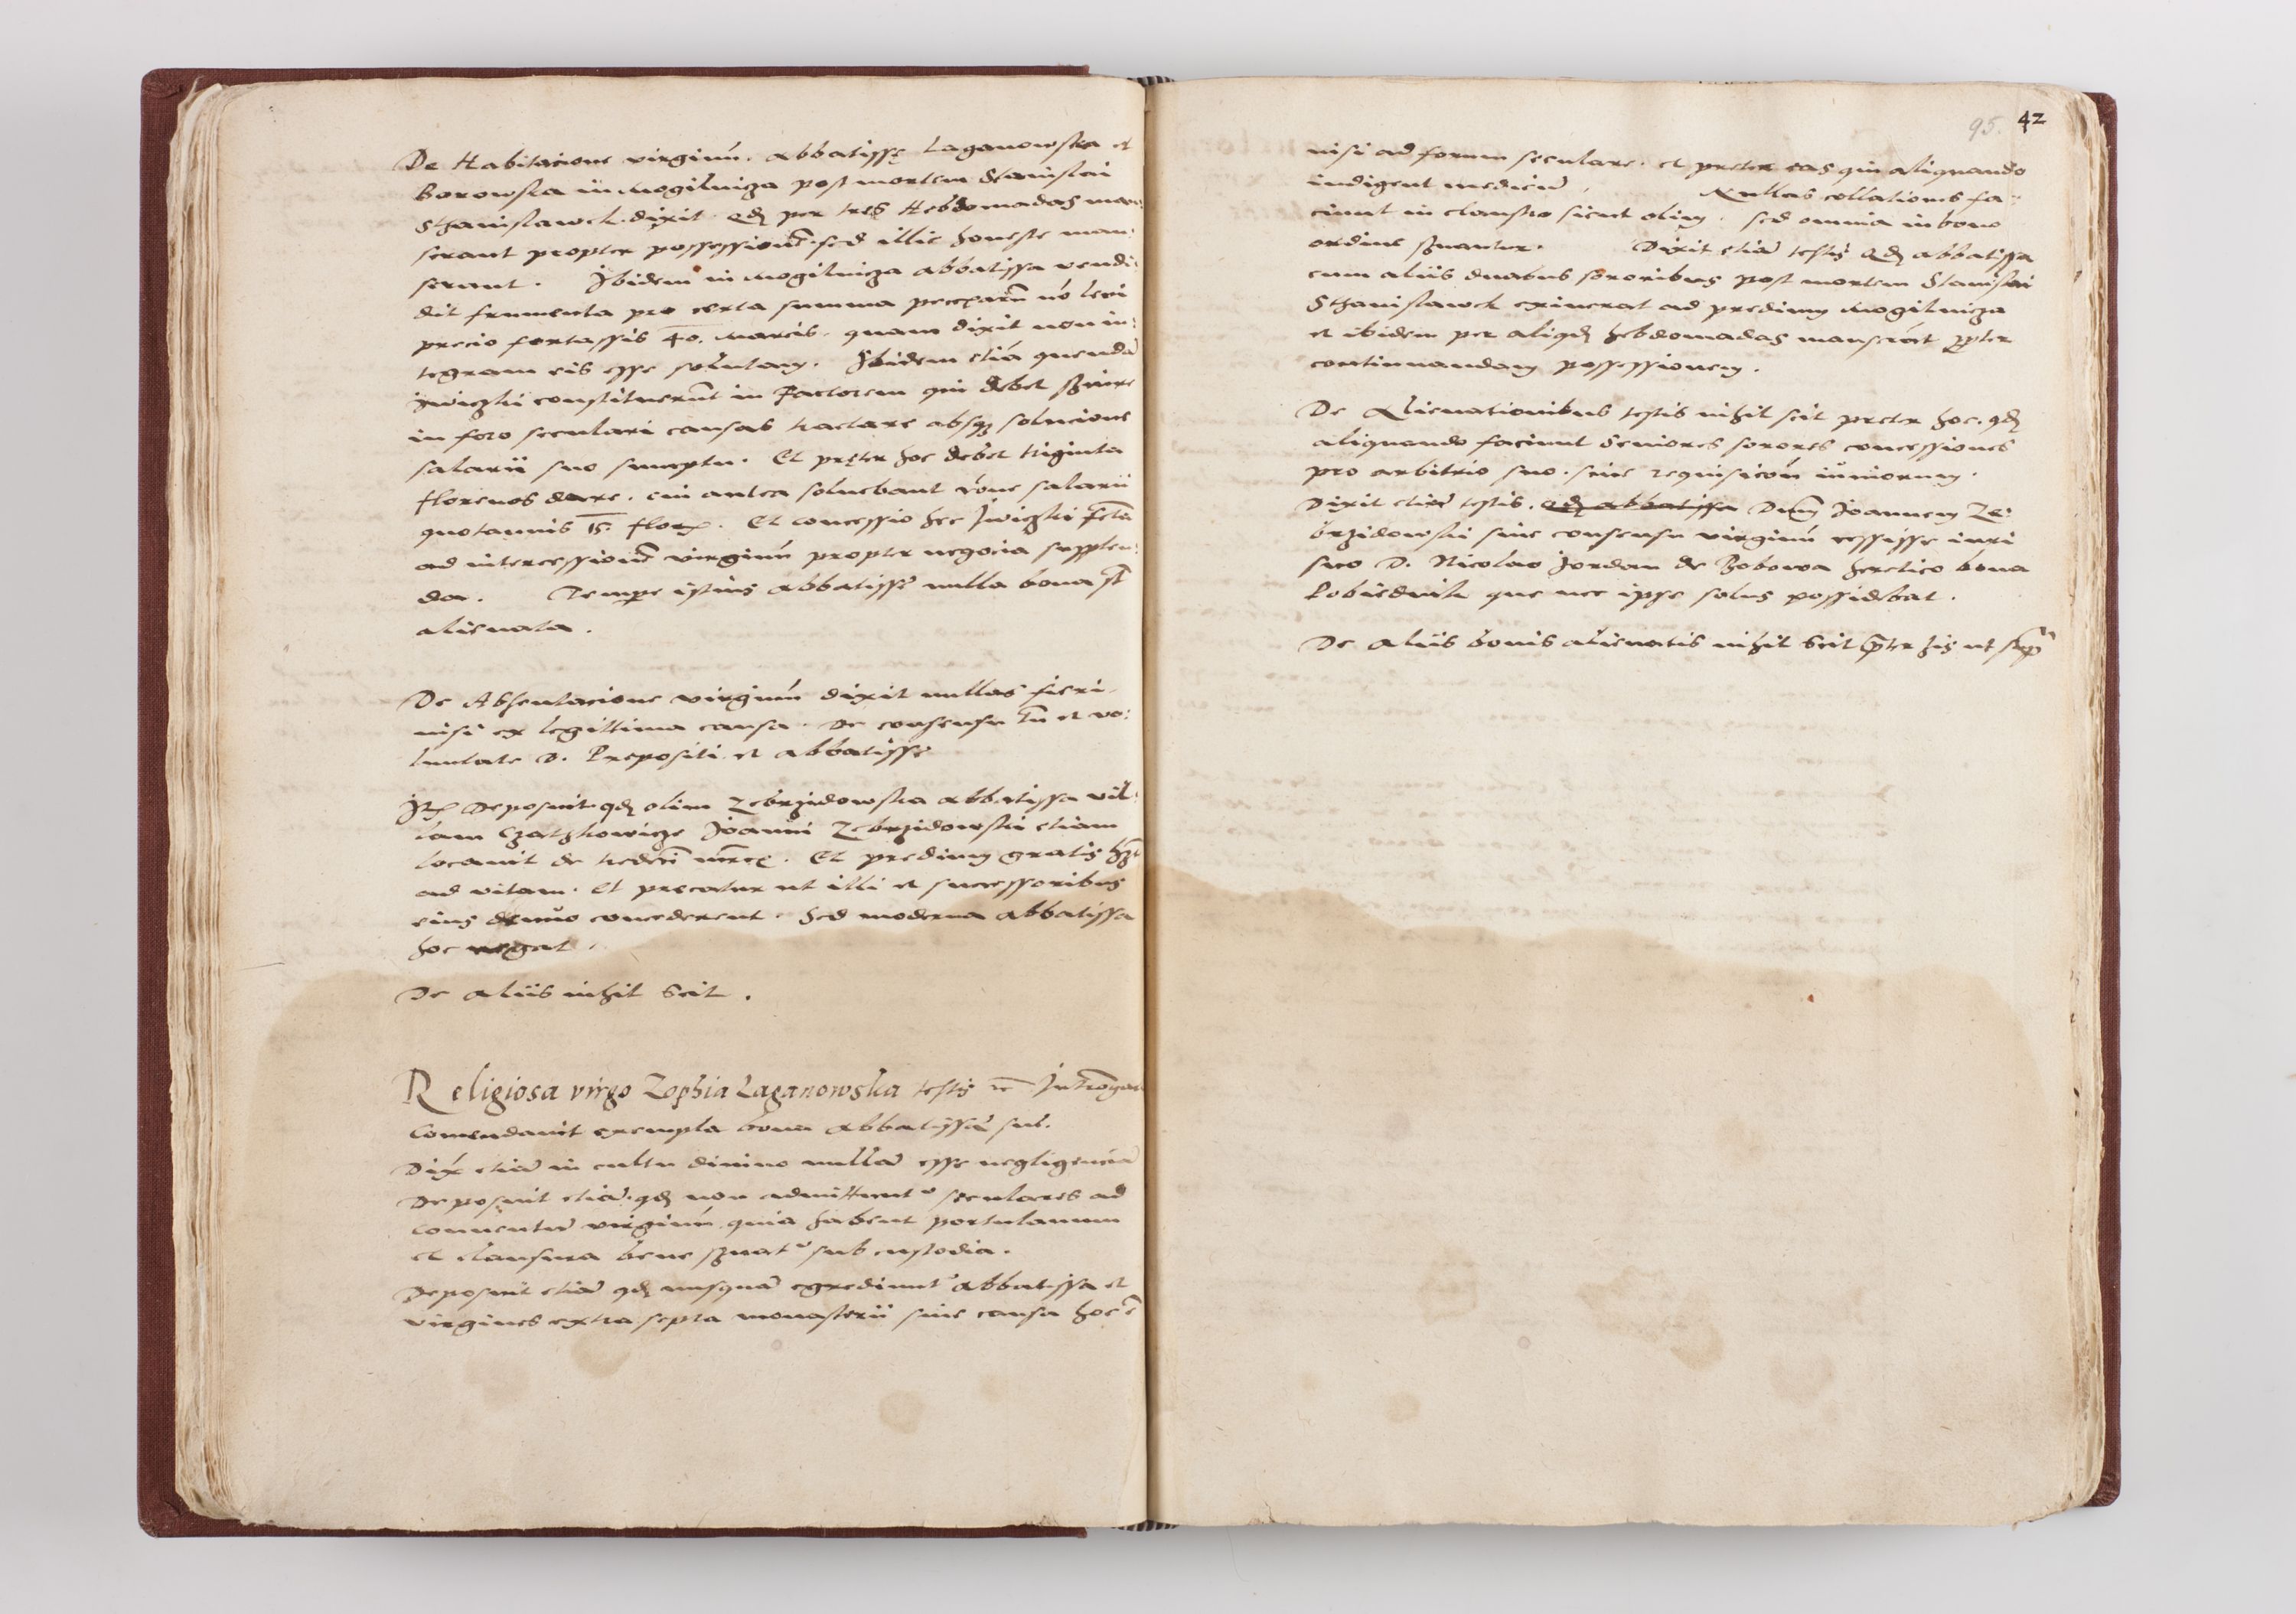 De Habitacione virginũ. Abbatissę Laganowska et
Borowska in Mogilnicza post mortem Stanislai
Sthanislawek. dixit. qđ per tres Hebdomadas man:
serant propter possessionẽ. sed illic honeste man:
serant. Ibidem in Mogilnicza abbatissa vendi:
dit frumenta pro certa summa
precio fortassis 40. marcis. quam dixit non in:
tegram eis esse solutam. Ibidem etiã quendã
Iwiczki constituerũt in Factorem qui debet
in foro seculari causas tractare absq₃ solucione
salarii suo sumptu. Et pręter hoc debet triginta
florenos dare. cui antea soluebant salarii
quotannis 15. flor. Et concessio hec Iwiczki fcta
ad intercessionẽ virginũ propter negocia supplen:
da. Tempe istius Abbatisse nulla bona st
alienata.
De Absentacione virginũ dixit nullas fieri
nisi ex legittima causa. De consensu tñ et vo:
luntate D. Prepositi et Abbatissę
Deposuit qđ olim Zebrzidowska Abbatissa vil:
lam Czatzkowicze Joanni Zebrzidowski etiam
locauit de Et predium gratis
ad vitam. Et precatur ut illi et successoribus
eius denuo concederent. Sed moderna Abbatissa
hoc negat.
De aliis nihil scit.
Religiosa virgo Zophia Laganowska testis
Comendauit exempla bona Abbatissæ suæ.
Dix etiã in cultu diuino nullã esse negligenciã
Deposuit etiã. qđ non admittunt seculares ad
conuentũ virginũ quia habent portulanum
et clausura bene sruat sub custodia.
Deposuit etiã qđ nusquã egrediunt Abbatissa et
virgines extra septa monasterii sine causa hoc ẽ
95. 42
nisi ad forum seculare. et preter eas qui aliquando
indigent medicinã. Nullas collationes fa:
ciunt in claustro sicut olim. sed omnia in bono
ordine sruantur. Dixit etiã testis qđ abbatissa
cum aliis duabus sororibus post mortem Stanislai
Sthanislawek exiuerat ad predium Mogilnicza
et ibidem per aliqđ hebdomadas manserũt ppter
continuandam possessionem.
De Alienationibus testis nihil scit preter hoc. qđ
aliquando faciunt Seniores sorores concessiones
pro arbitrio suo. sine requisicõn iuniorum.
Dixit etiã testis. qđ abbatissa Dnm Joannem Ze:
brzidowski sine consensu virginũ cessisse iuri
suo D. Nicolao Jordan de Zobowa heretico bona
Pobiednik que nec ipse solus possidebat.
De aliis bonis alienatis nihil scit pter his ut sup